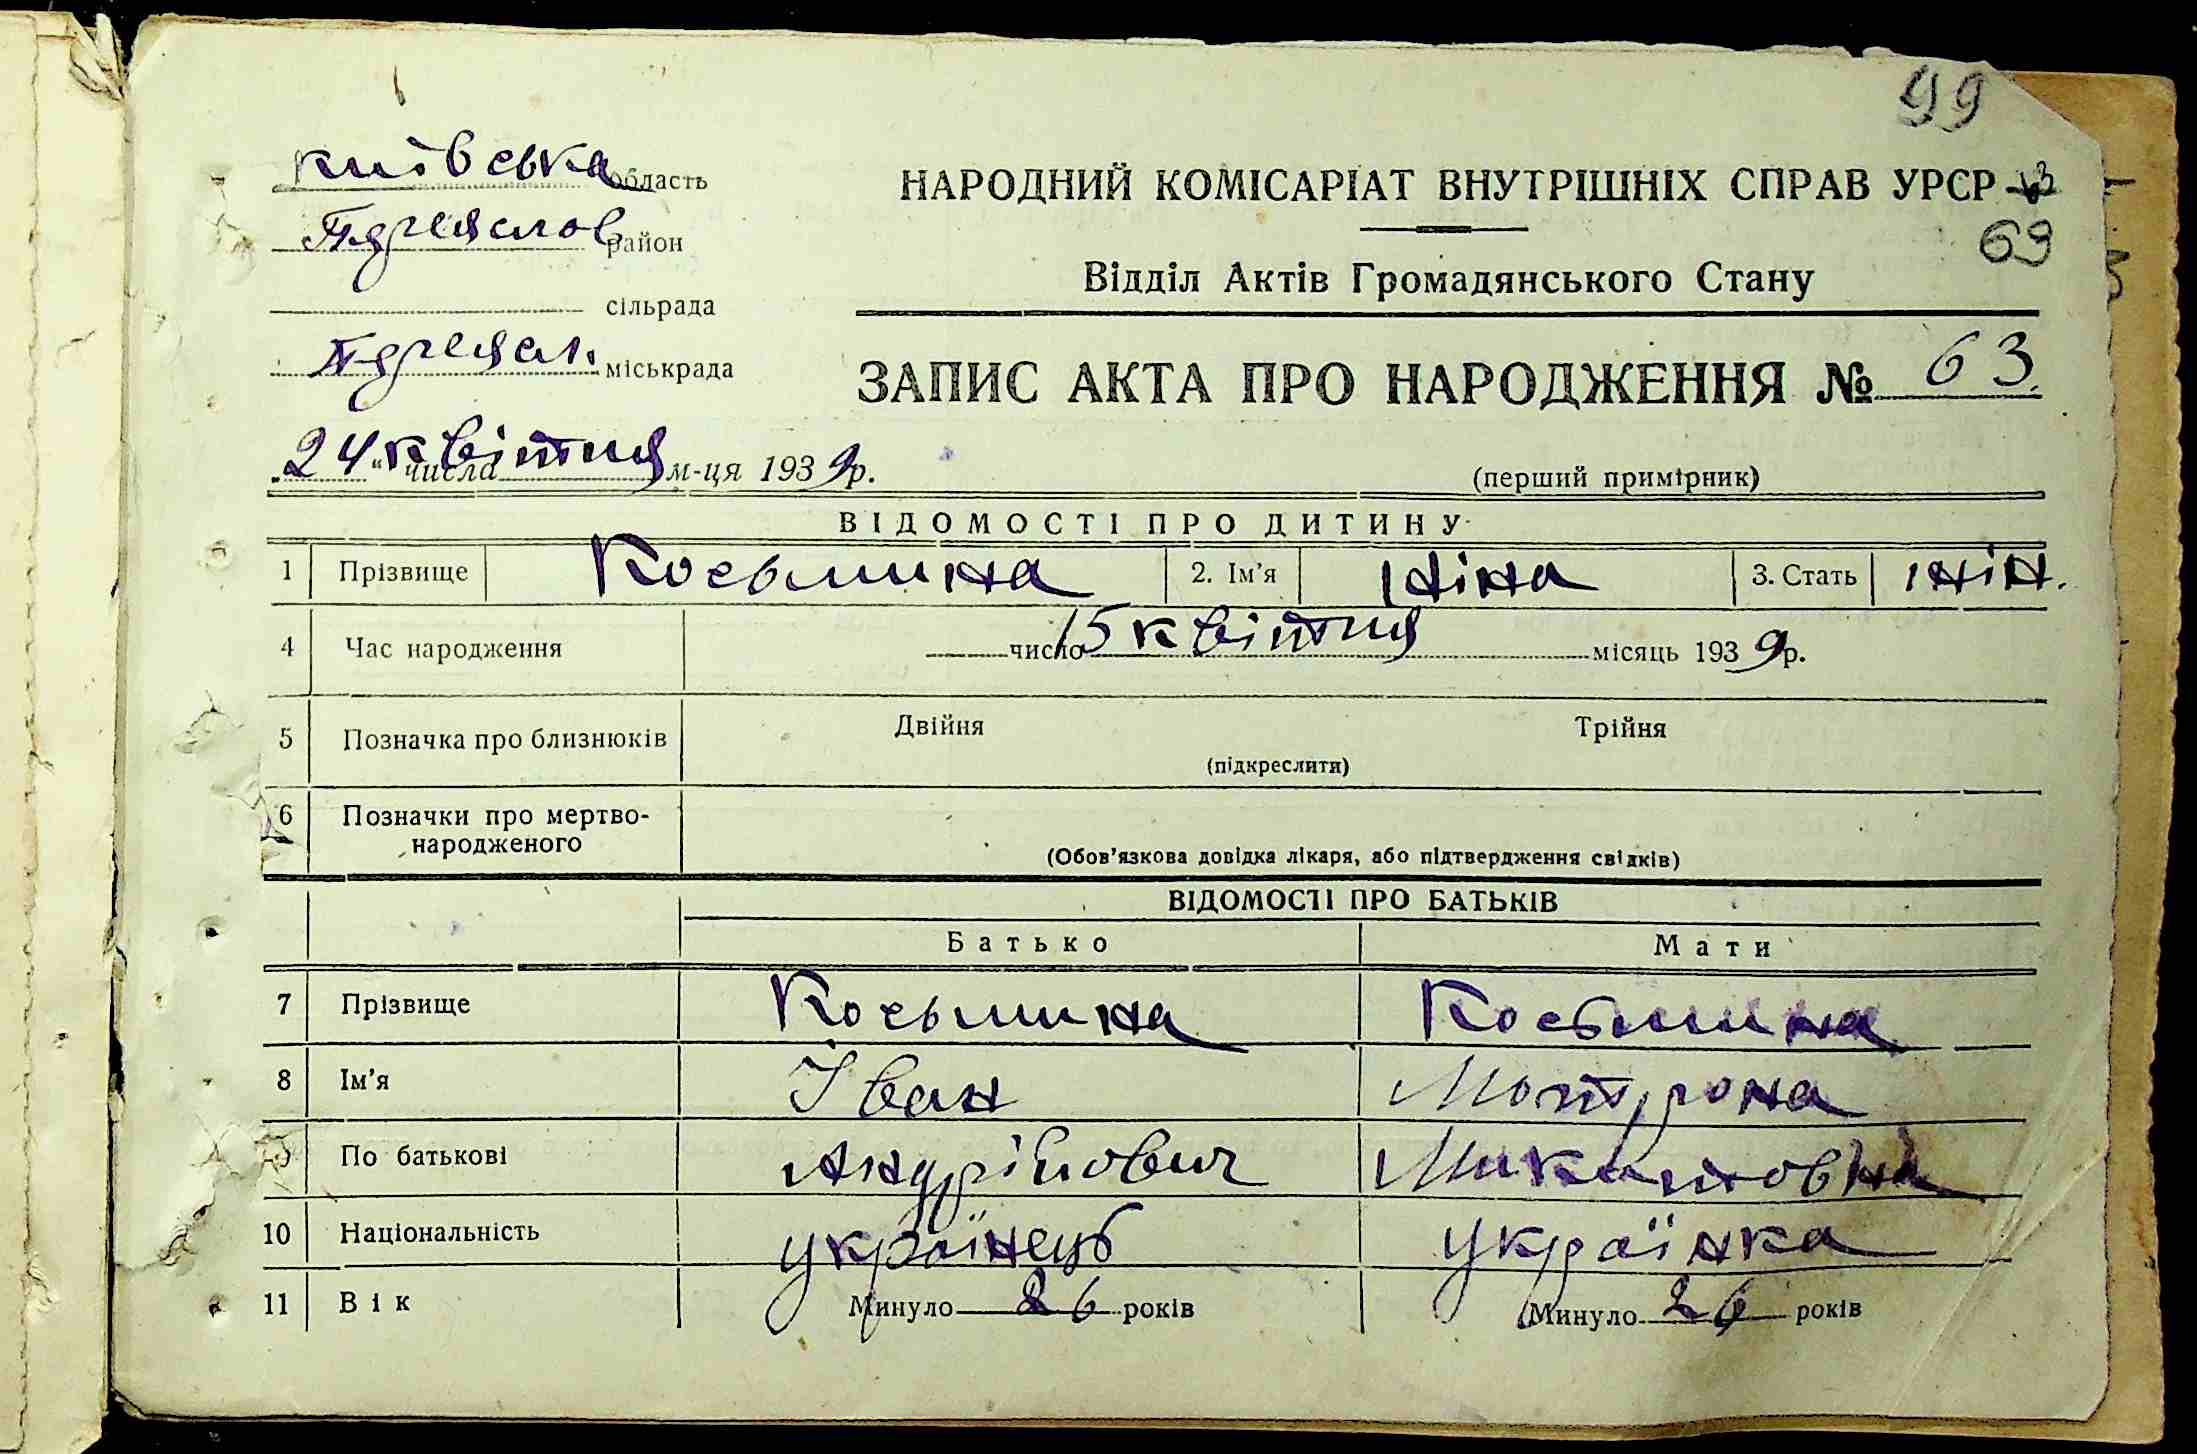 99
київська область
НАРОДНИЙ КОМІСАРІАТ ВНУТРІШНІХ СПРАВ УРСР
Переяслов район
69
Відділ Актів Громадянського Стану
сільрада
Переясл. міськрада
ЗАПИС АКТА ПРО НАРОДЖЕННЯ № 63.
„24" числа квітня м-ця 1939р.
(перший примірник)
ВІДОМОСТІ ПРО ДИТИНУ
1 Прізвище Косьмина 2. Ім'я Ніна 3. Стать жін.
4 Час народження число 15 квітня місяць 1939р.
5 Позначка про близнюків Двійня Трійня
(підкреслити)
6 Позначки про мертво-
народженого
(Обов'язкова довідка лікаря, або підтвердження свідків)
ВІДОМОСТІ ПРО БАТЬКІВ
Батько Мати
7 Прізвище Косьмина Косьмина
8 Ім'я Іван Мотрона
9 По батькові Андрійович
10 Національність українець українка
11 Вік Минуло 26 років Минуло 26 років